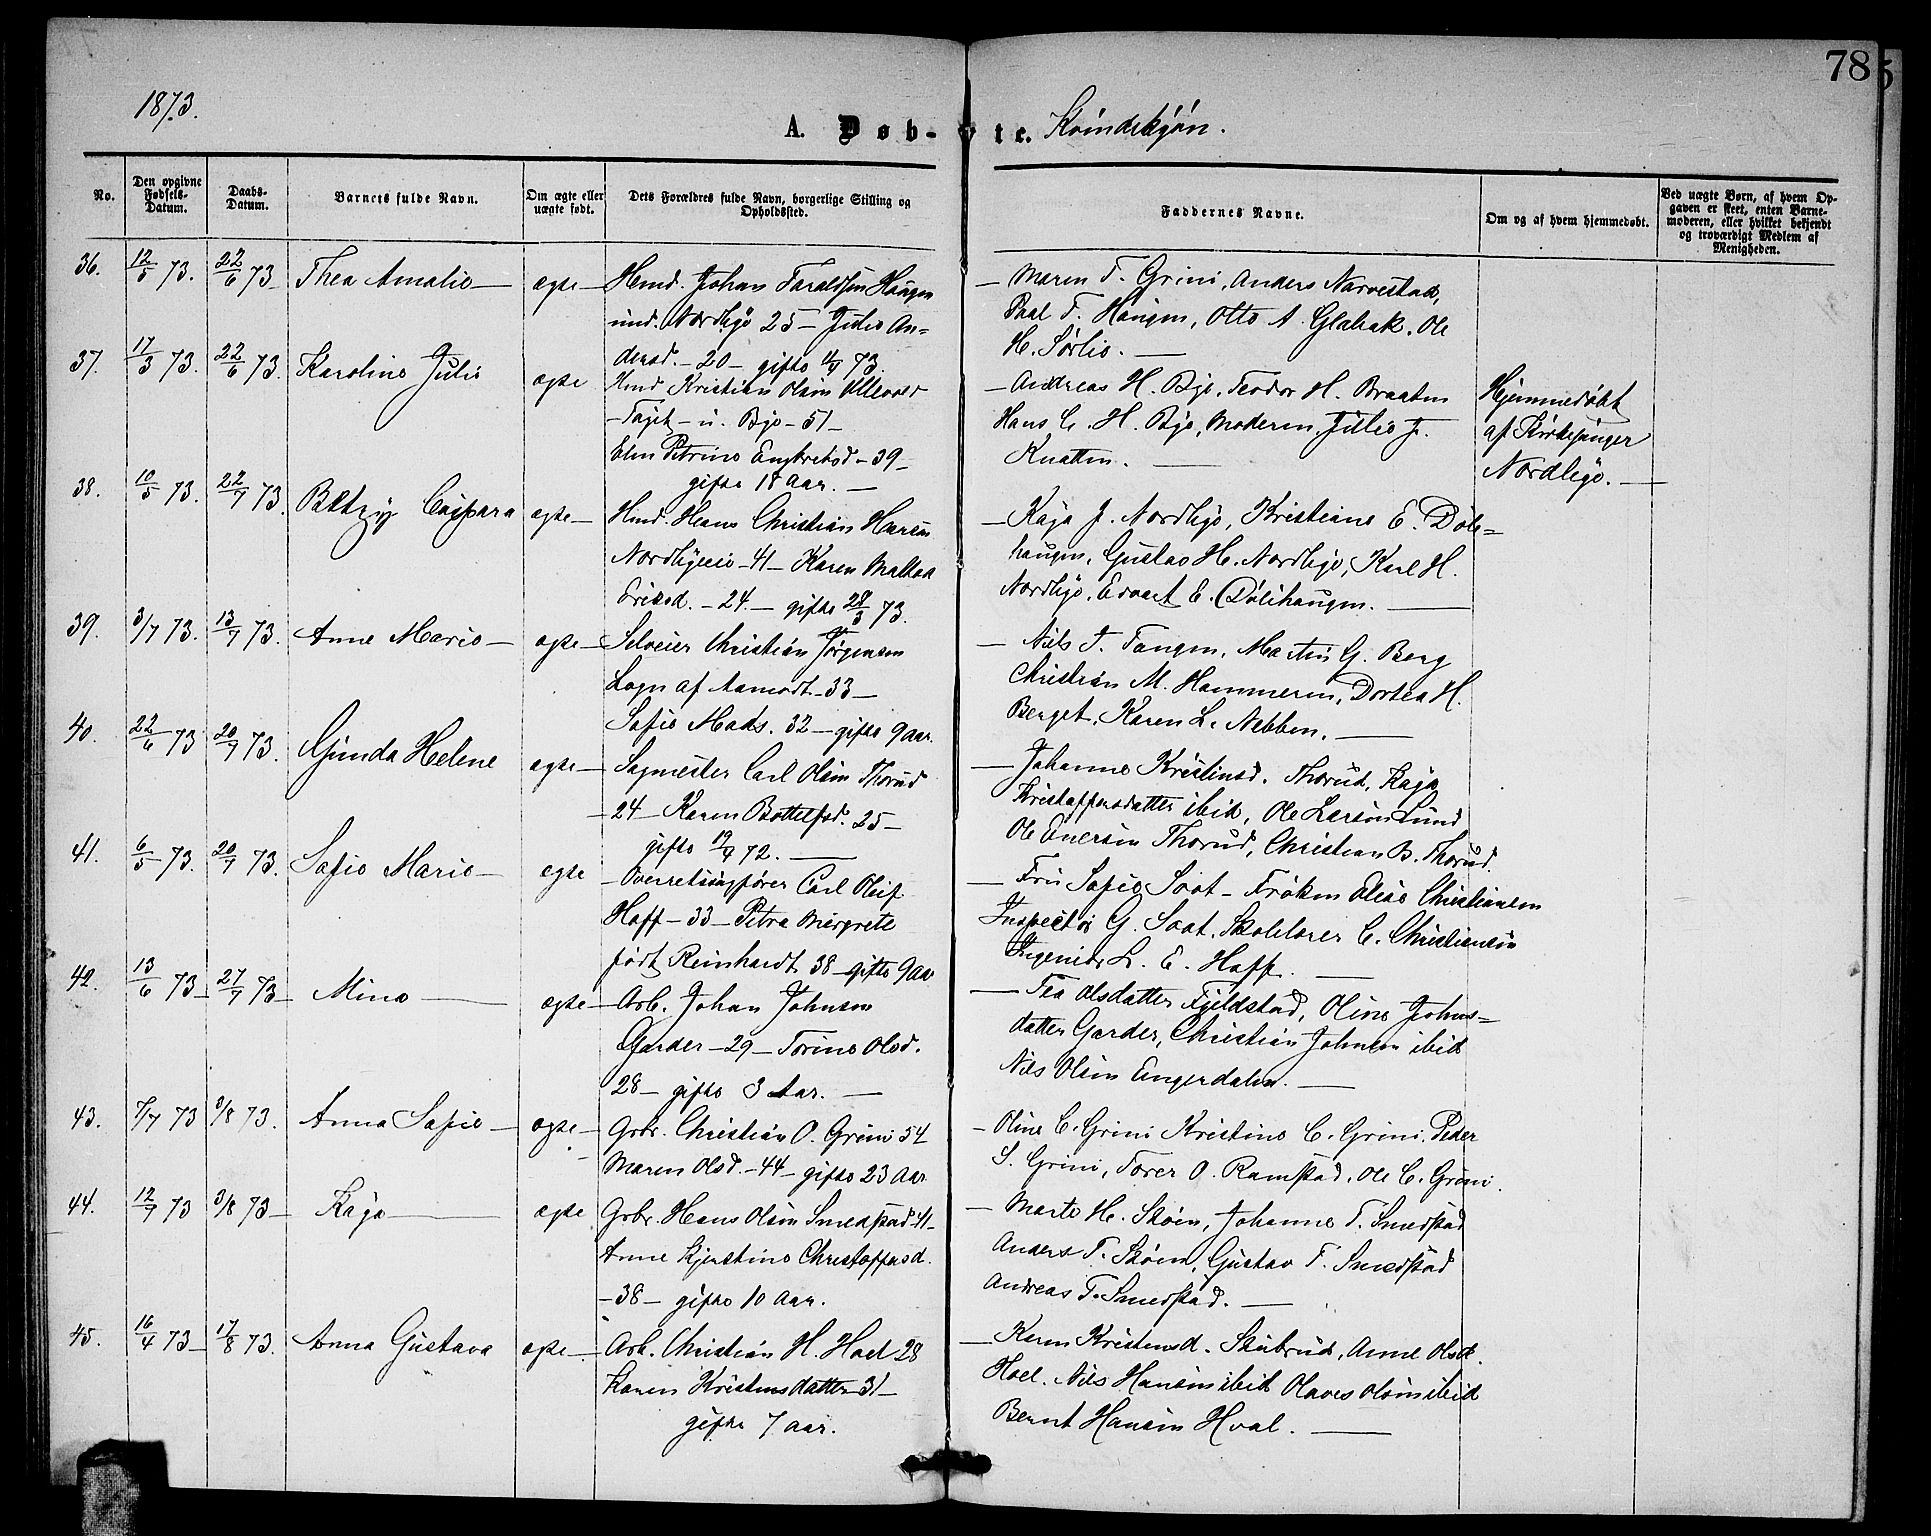 78
5
1873.
A. Døb-te. Kvindekjøn.
No.
Den opgivne Fødsels-Datum.
Daabs-Datum.
Barnets fulde Navn.
Om ægte eller uægte født.
Dets Forældres fulde Navn, borgerlige Stilling og Opholdssted.
Faddernes Navne.
Om og af hvem hjemmedøbt.
Ved uægte Børn, af hvem Opgaven er skeet, enten Barnemoderen, eller hvilket bekjendt og troværdigt Medlem af Menigheden.
36. 12/5 73. 22/6 73 Thea Amalie — ægte —
Hmd. Johan Taraldsen Haugen
und. Nordbye 25 — Julie An=
dersd. — 20 — gifte 73.
— Maren T. Grini, Anders Narvestad,
Paal T. Haugen, Otto A. Glabak. Ole
H. Sørlie. —
37. 17/3 73. 22/6 73. Karoline Julie ægte
Hmd Kristian Olsen
— u. Bye — 51 —
Elen Petrine Engbretsd — 39 —
gifte 18 Aar. —
— Andreas H. Bye, Teodor H. Braaten
Hans C. H. Bye, Moderen, Julie J.
Knatten. —
Hjemmedøbt
af Kirkesanger
Nordbye. —
38. 10/5 73. 22/7 73. Betzy Caspara ægte —
Hmd. Hans Christian Hansen
Nordbyeeie — 41 — Karen Mathea
Eriksd. — 24. — gifte 28/3 73.
— Kaja J. Nordbye, Kristiane E. Døle=
haugen, Gustav H. Nordbye, Karl H.
Nordbye, Edvart E. Dølihaugen. —
39. 3/7 73. 13/7 73. Anne Marie — ægte —
Selveier Christian Jørgensen
Logn af Aamodt — 33 —
Sofie Mads. 32 — gifte 9 Aar.
— Nils J. Tangen, Martin G. Berg
Christian M. Hammeren, Dortea H.
Berget. Karen L. Nebben. —
40. 22/6 73 20/7 73. Gunda Helene ægte —
Sagmester Carl Olsen Thorud
— 24 — Karen Bottelfsd. 25 —
gifte 72. —
— Johanne Kristinsd. Thorud, Kaja
Kristoffersdatter ibid, Ole Larsen Lund
Ole Enersen Thorud, Christian B. Thorud.
41. 6/5 73. 20/7 73. Sofie Marie — ægte
— Overretssagfører Carl Oluf
Hoff — 33 — Petra Margrete
født Reinhardt 38 — gifte 9 Aar
— Fru Sofie Soot — Frøken Elise Christiansen
Inspectør G. Soot. Skolelærer C. Christiansen
Ingeniør L. E. Hoff. —
42. 13/6 73 — 27/7 73 — Mina — ægte —
Arb. Johan Johnsen
Garder — 29 — Torine Olsd.
28 — gifte 3 Aar. —
— Tea Olsdatter Fjeldstad, Oline Johns=
datter Garder, Christian Johnsen ibid
Nils Olsen Engerdalen. —
43. 7/7 73 3/8 73. Anna Sofie — ægte —
Grbr. Christian O. Grini 54
Maren Olsd. — 44 — gifte 23 Aar
— Oline C. Grini Kristine C. Grini. Peder
S. Grini, Torer O. Ramstad, Ole C. Grini.
44. 12/7 73 3/8 73 — Kaja — ægte
Grbr. Hans Olsen Smedstad 41 —
Anne Kjerstine Christoffersd.
— 38 — gifte 10 Aar.
— Marte H. Skøien, Johanne T. Smedstad
Anders T. Skøien, Gustav T. Smedstad
Andreas T. Smedstad. —
45. 16/4 73 — 17/8 73. Anna Gustava ægte —
Arb. Christian H. Hoel 28
Karen Kristensdatter 31 —
gifte 7 Aar.
— Karen Kristensd. Skubrud, Anne Olsd.
Hoel. Nils Hansen ibid Olaves Olsen ibid
Bernt Hansen Hval. —